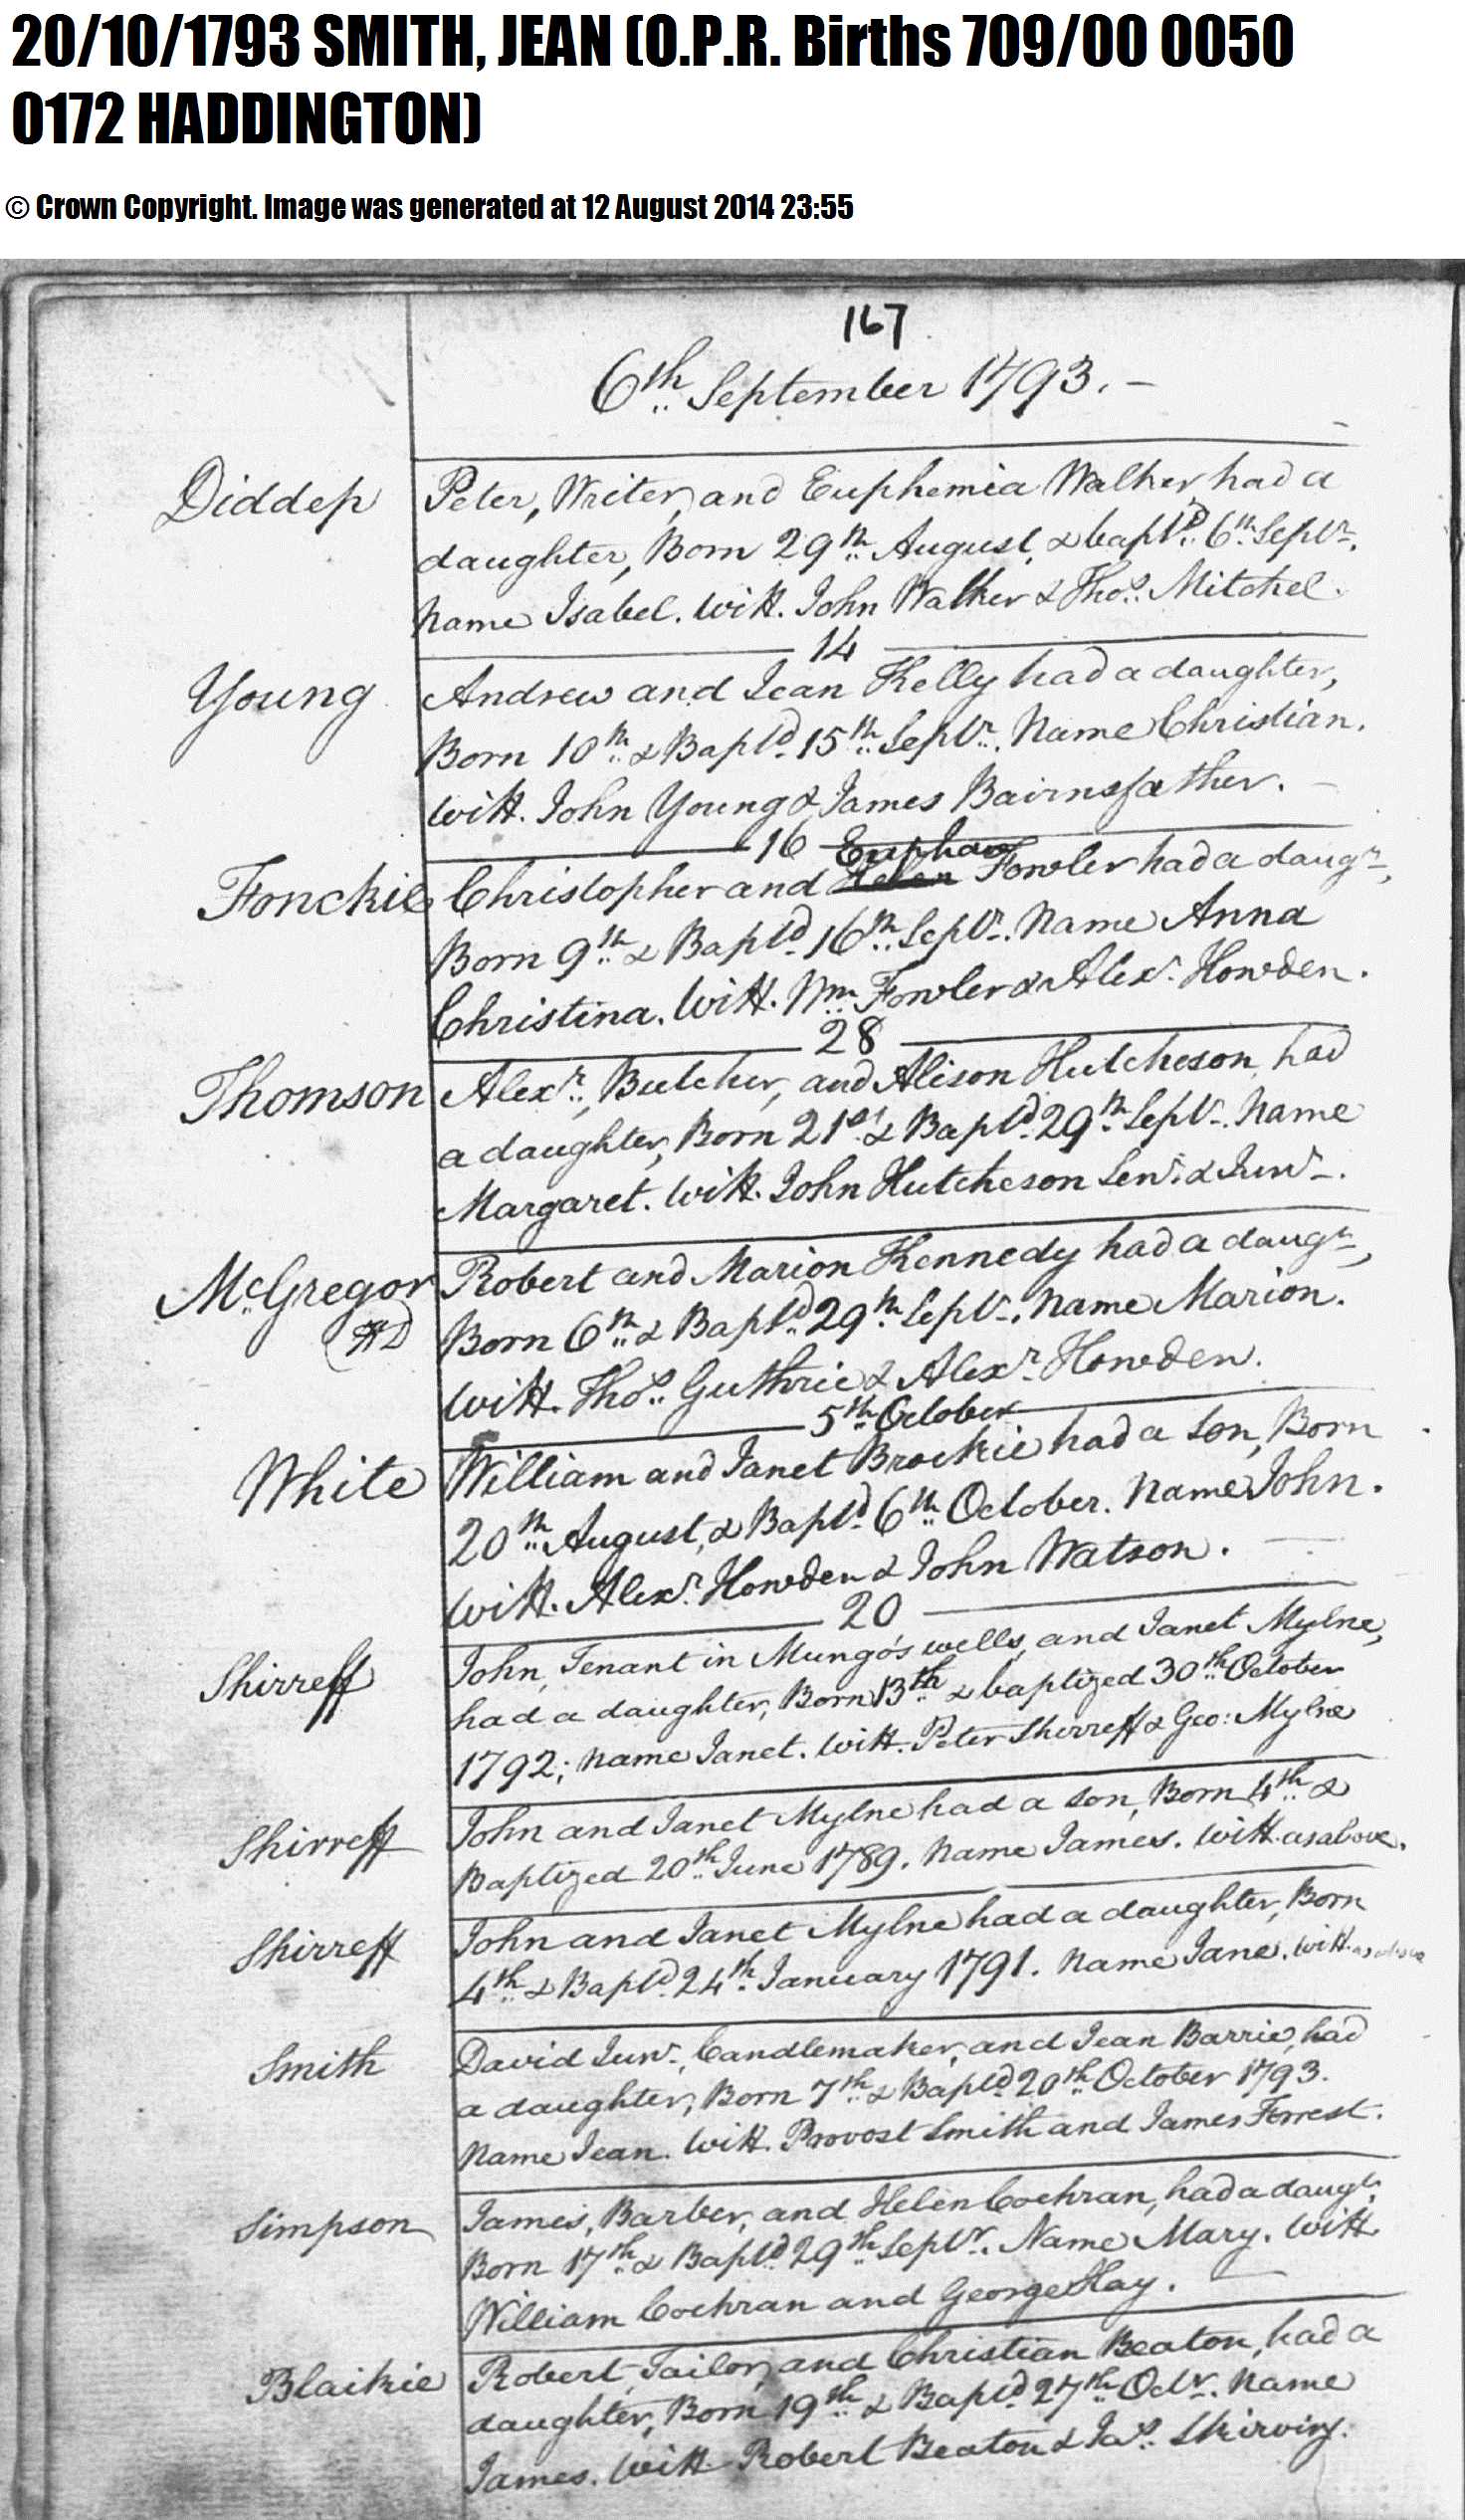 20/10/1793 SMITH, JEAN (O.P.R. Births 709/00 0050
0172 HADDINGTON)
© Crown Copyright. Image was generated at 12 August 2014 23:55
167
6th September 1793. –
Diddep Peter, Writer, and Euphemia Walker had a
daughter, Born 29th August, & baptd 6th Septr.
Name Isabel. Witt. John Walker & Thos. Mitchel.
14
Young Andrew and Jean Kelly had a daughter,
Born 10th & Baptd 15th Septr. Name Christian.
Witt. John Young & James Bairnsfather. –
16 Euphan
Fonckie Christopher and Helen Fowler had a daugr,
Born 9th & Baptd 16th Septr. Name Anna
Christina. Witt. Wm Fowler & Alexr. Howden.
28
Thomson Alexr., Butcher, and Alison Hutcheson, had
a daughter, Born 21st & Baptd 29th Septr. Name
Margaret. Witt. John Hutcheson Senr. & Junr.
McGregor Robert and Marion Kennedy had a daugr,
Born 6th & Baptd 29th Septr. Name Marion.
Witt. Thos. Guthrie & Alexr Howden.
5th October
White William and Janet Brockie had a son, Born
20th August, & Baptd 6th October. Name John.
Witt. Alexr Howden & John Watson.
20
Shirreff John, Tenant in Mungo's wells, and Janet Mylne,
had a daughter, Born 13th & baptized 30th October
1792; Name Janet. Witt. Peter Sherreff & Geo: Mylne
Shirreff John and Janet Mylne had a son, Born 4th &
Baptized 20th June 1789. Name James. Witt. as above.
Shirreff John and Janet Mylne had a daughter, Born
4th & Baptd 24th January 1791. Name Jane. Witt. as above
Smith David Junr., Candlemaker, and Jean Barrie, had
a daughter, Born 7th & Baptd 20th October 1793.
Name Jean. Witt. Provost Smith and James Forrest.
Simpson James, Barber, and Helen Cochran, had a daugr.
Born 17th & Baptd 29th Septr. Name Mary. Witt
William Cochran and George Hay.
Blaikie Robert, Tailor, and Christian Beaton, had a
daughter, Born 19th & Baptd 27th Octr. Name
James. Witt. Robert Beaton & Jas. Skirving.